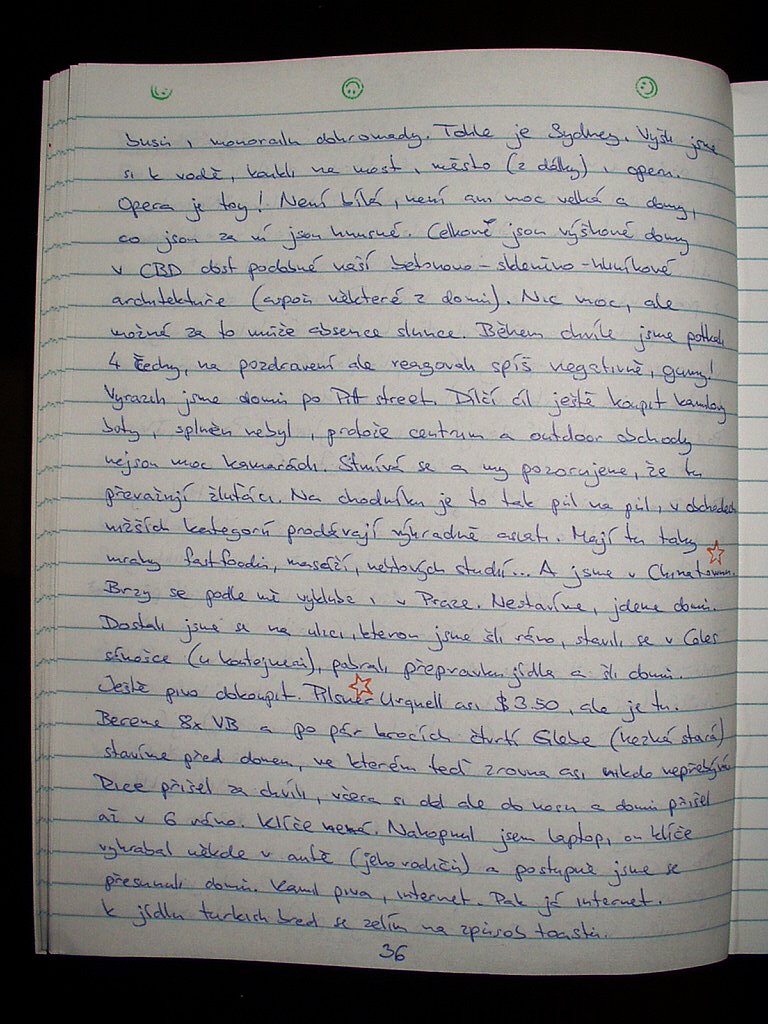 busů i monorailu dohromady. Tohle je Sydney. Vyšli jsme
si k vodě, koukli na most, město (z dálky) i operu.
Opera je toy! Není bílá, není ani moc velká a domy,
co jsou za ní jsou hnusné. Celkově jsou výškové domy
v CBD dost podobné naší betonovo-sklenivo-hliníkové
architektuře (aspoň některé z domů). Nic moc, ale
možná za to může absence slunce. Během chvíle jsme potkali
4 Čechy, na pozdravení ale reagovali spíš negativně,
Vyrazili jsme domů po Pitt street. Dílčí cíl ještě koupit
boty, splněn nebyl, protože centrum a outdoor obchody
nejsou moc kamarádi. Stmívá se a my pozorujeme, že tu
převažují žluťáci. Na chodníku je to tak půl na půl, v obchodech
nižších kategorií prodávají výhradně asiati. Mají tu taky
mraky fastfoodů, masáží, nehtových studií... A jsme v Chinatownu.
Brzy se podle mě vyklube i v Praze. Nestavíme, jdeme domů.
Dostali jsme se na ulici, kterou jsme šli ráno, stavili se v Coles
(u kontejnerů), pobrali přepravku jídla a šli domů.
Ještě pivo dokoupit. Pilsner Urquell asi $3.50, ale je tu.
Bereme 8x VB a po pár krocích čtvrtí Glebe (hezká stará)
stavíme před domem, ve kterém teď zrovna asi nikdo nepřebývá
přišel za chvíli, včera si dal ale do nosu a domů přišel
až v 6 ráno. Klíče nemá. Nakopnul jsem laptop, on klíče
vyhrabal někde v autě (jeho rodičů) a postupně jsme se
přesunuli domů. Kamil piva, internet. Pak já internet.
K jídlu turkish bred se zelím na způsob toastů.
36